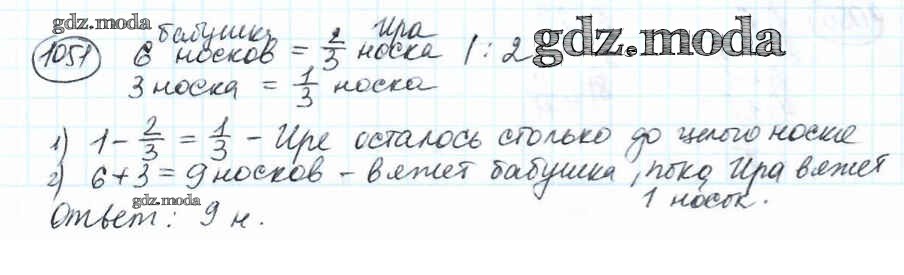 gdz.moda
бабушка Ира
1051 6 носков = 2/3 носка | : 2 gdz.moda
3 носка = 1/3 носка
1) 1 - 2/3 = 1/3 - Ире осталось столько до целого носка
2) 6 + 3 = 9 носков - вяжет бабушка, пока Ира вяжет
gdz.moda 1 носок.
Ответ: 9 н.